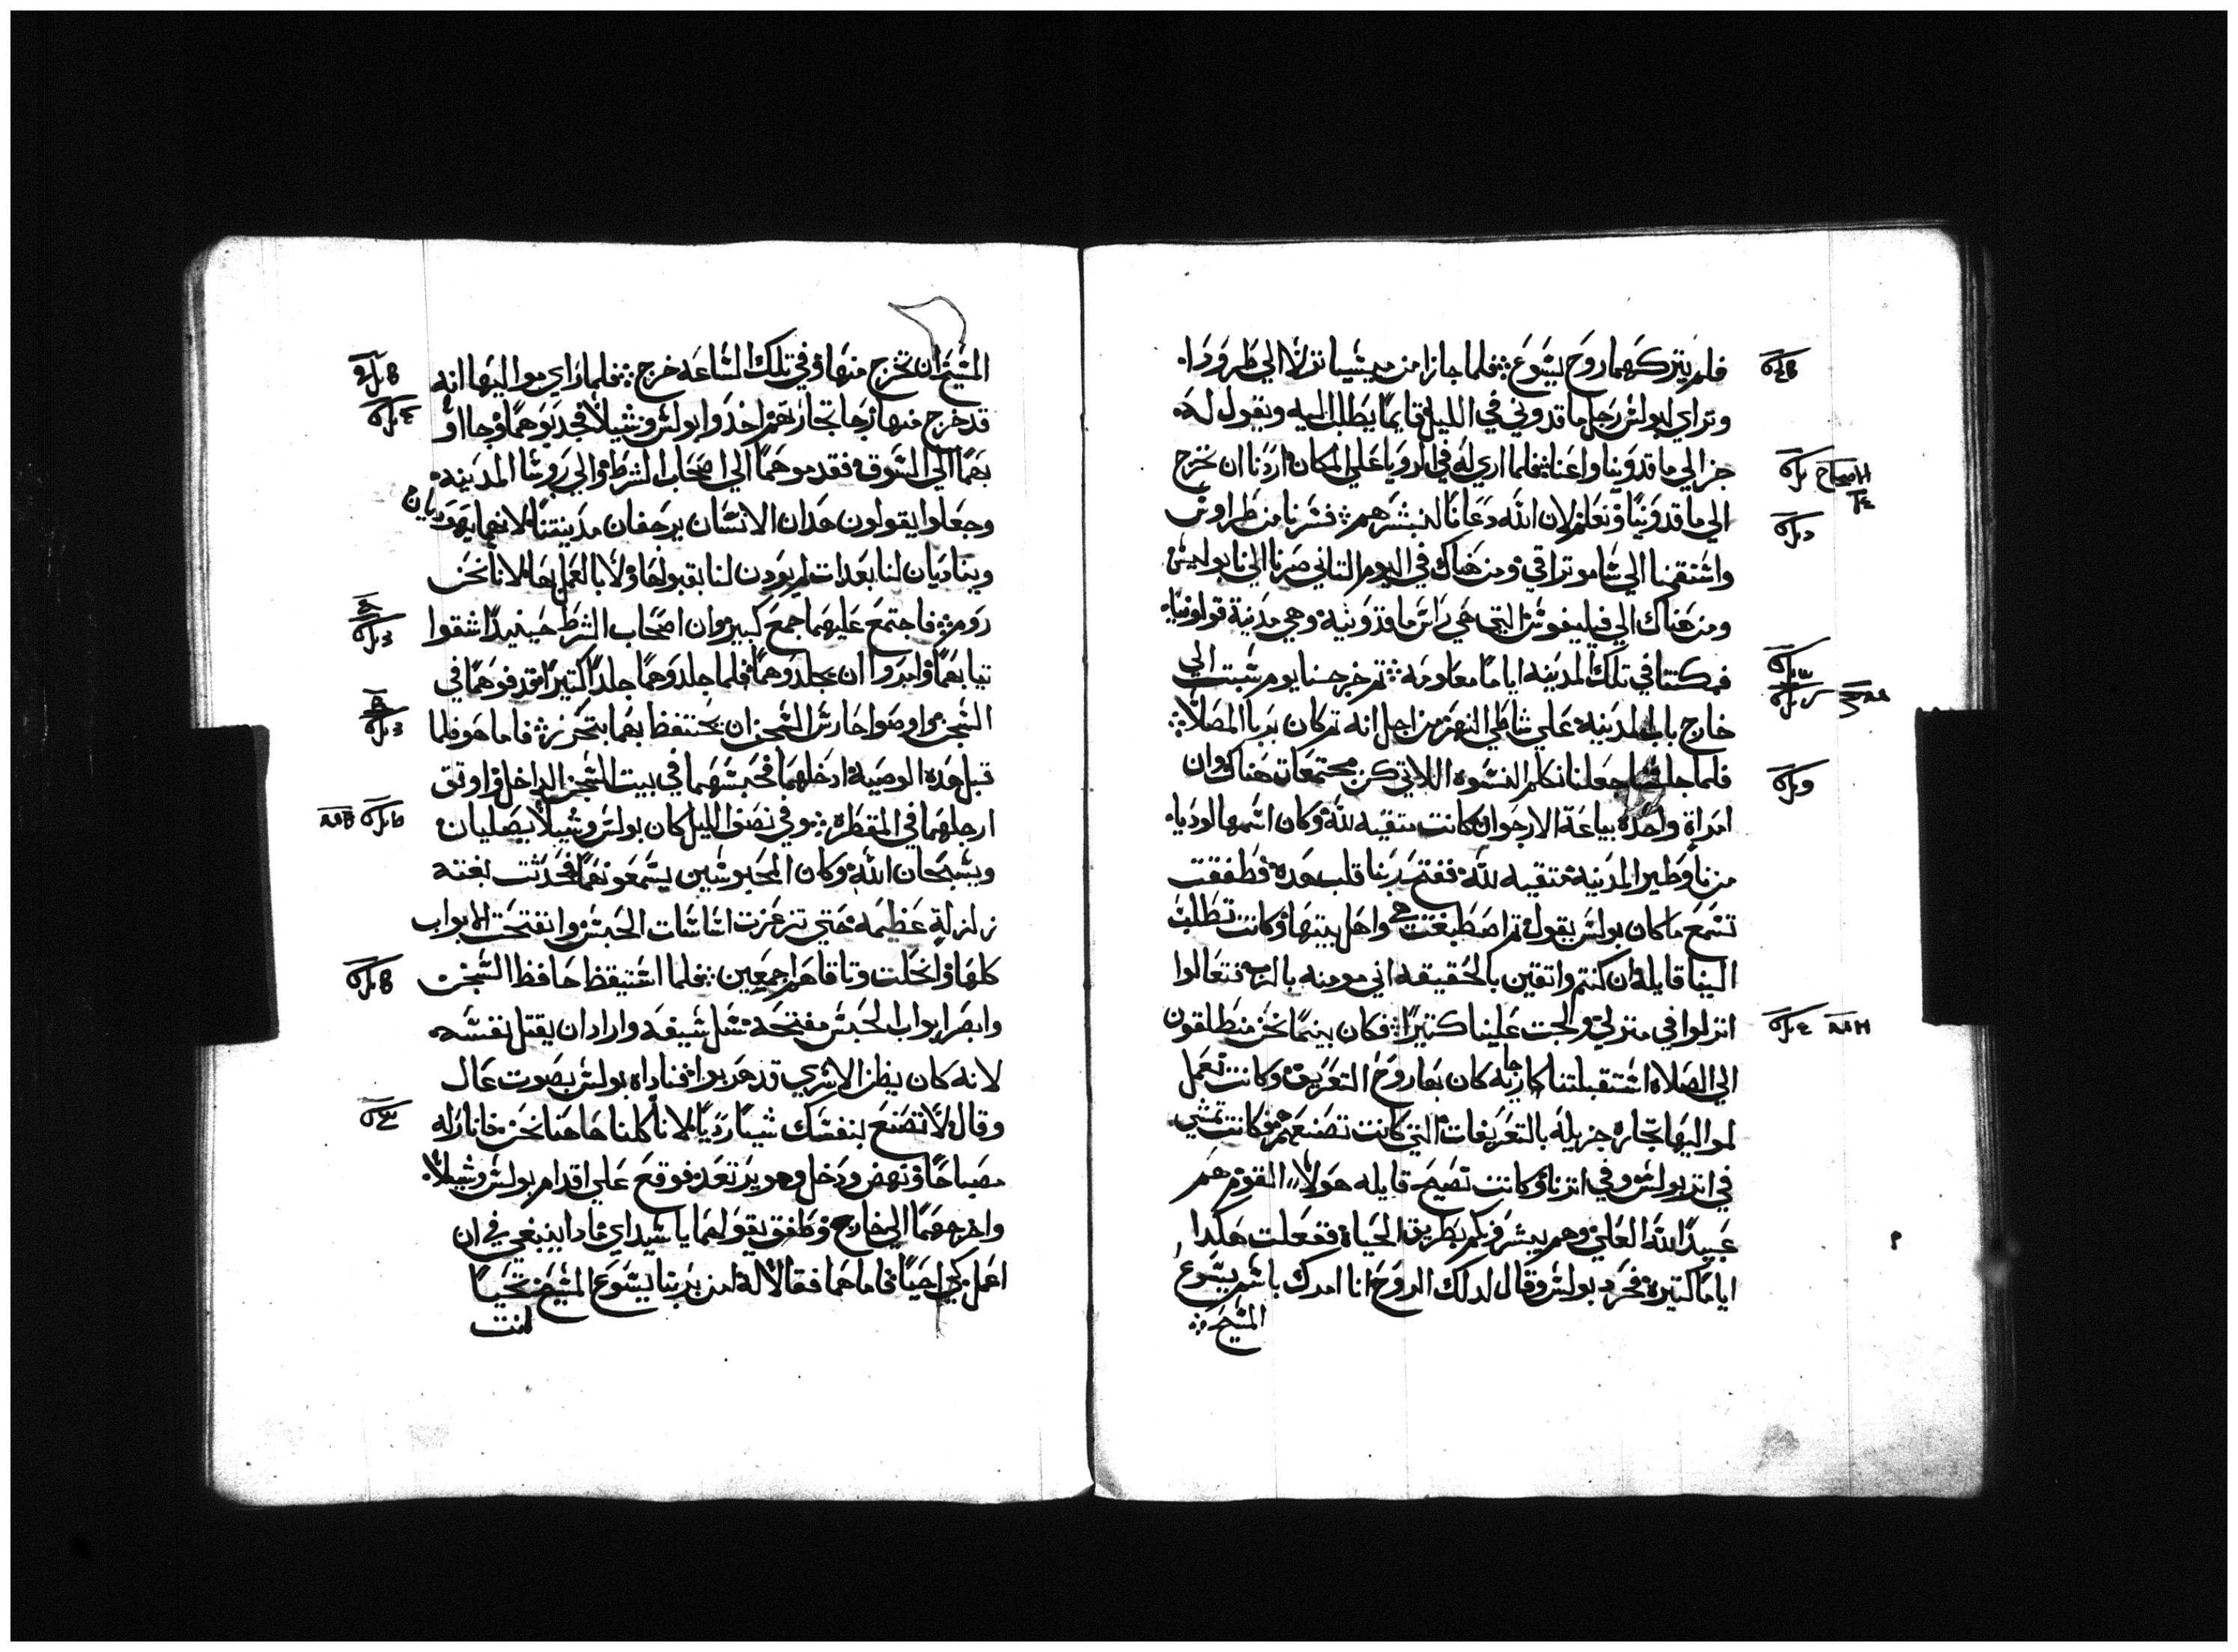 فلم يتركهما روح يسوع ⁘ فلما جازا من ميسيا نزلا الي طرودا۰
وتراي لبولس رجل ماقدوني في الليل قايمًا يطلب اليه ويقول له۰
جز الي ماقدونيا واعنا ⁘ فلما اري له في الرويا علي المكان اردنا ان نخرج
الي ماقدونيا ونعلم لان الله دعانا لنبشرهم ⁘ فسرنا من طراوس
واستقمنا الي ساموتراقي ومن هناك في اليوم التاني صرنا الي نابوليس
ومن هناك الي فيليفوس التي هي راس ماقدونيه وهي مدينة قولونيا۰
فمكتنا في تلك المدينه اياما معلومه ⁘ تم خرجنا يوم سبت الي
خارج باب المدينه علي شاطي النهر من اجل انه تم كان يريا المصلا ⁘
فلما جلسنا جعلنا نكلم النسوه اللاتي كن مجتمعات هناك وان
امراة واحده بياعة الارجوان كانت متقيه لله وكان اسمها لوديا۰
من تاوطيرا المدينه متقيه لله ففتح ربنا قلب هده فطفقت
تسمع ما كان بولس يقول تم اصطبغت هي واهل بيتها وكانت تطلب
الينا قايله ان كنتم واتقين بالحقيقه اني مومنه بالرب فتعالوا
انزلوا في منزلي والجت علينا كتيرًا ⁘ فكان بينما نحن منطلقون
الي الصلاه استقبلتنا جاريه كان بها روح التعريف وكانت تعمل
لمواليها تجاره جزيله بالتعريفات التي كانت تصنعهم وكانت تمشي
في اتر بولس وفي اترنا وكانت تصيح قايله هولا القوم هم
عبيد الله العلي وهم يبشرونكم بطريق الحياة ففعلت هكدا
اياما كتيره فحرد بولس وقال لدلك الروح انا امرك باسم يسوع
المسيح ⁘
المسيح ان تخرج منها وفي تلك الساعه خرج ⁘ فلما راي مواليها انه
قد خرج منها رجا تجارتهم اخدوا بولس وشيلا فجدبوهما وجاأو
بهما الي السوق فقدموهما الي اصحاب الشرط والي روسا المدينه۰
وجعلوا يقولون هدان الانسان يرجفان مدينتنا لانهما يهوديان
ويناديان لنا بعدات لم يودن لنا بقبولها ولا بالعمل بها لانا نحن
روم ⁘ فاجتمع عليهما جمع كبير وان اصحاب الشرط حينيدًا شقوا
تيابهما وامروا ان يجلدوهما فلما جلدوهما جلدًا كتيرًا قدفوهما في
السجن واوصوا حارس السجن ان يحتفظ بهما بتحرز ⁘ فاما هو فلما
قبل هده الوصية ادخلهما فحبسهما في بيت السجن الداخل واوتق
ارجلهما في المقطره ⁘ وفي نصف الليل كان بولس وشيلا يصليان
ويسبحان الله وكان المحبوسين يسمعونهما فحدثت بغته
زلزلة عظيمه حتي تزعزت اساسات الحبس وانفتحت الابواب
كلها وانحلت وتاقاهم اجمعين ⁘ فلما استيقظ حافظ السجن
وابصر ابواب الحبس مفتحه سل سيفه واراد ان يقتل نفسه۰
لانه كان يظن الاسري قد هربوا فناداه بولس بصوت عال
وقال لا تصنع بنفسك شيا رديًا لانا كلنا هاهنا نحن فانار له
مصباحًا ونهض ودخل وهو يرتعد فوقع علي اقدام بولس وشيلا۰
واخرجهما الي خارج وطفق يقول لهما يا سيداي مادا ينبغي في ان
اعمل كي احيا فاما هما فقالا له امن بربنا يسوع المسيح تحيا
انت